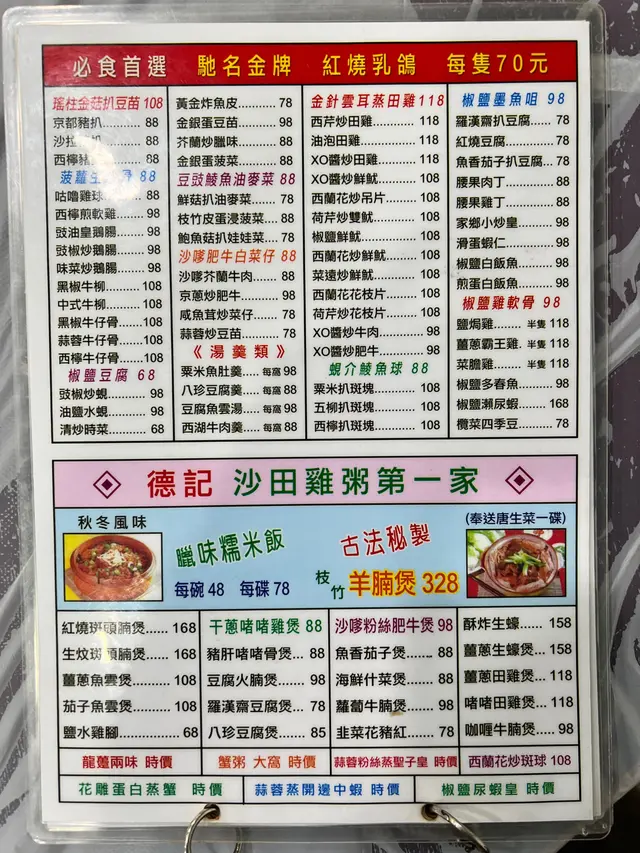 必食首選 馳名金牌 紅燒乳鴿 每隻70元
瑤柱金菇扒豆苗 108
京都豬扒......... 88
沙拉 扒......... 88
西檸豬 ......... 88
菠蘿生 骨 88
咕嚕雞球......... 88
西檸煎軟雞...... 98
豉油皇鵝腸...... 98
豉椒炒鵝腸...... 98
味菜炒鵝腸...... 98
黑椒牛柳.........108
中式牛柳.........108
黑椒牛仔骨......108
蒜蓉牛仔骨......108
西檸牛仔骨......108
椒鹽豆腐 68
豉椒炒蜆......... 98
油鹽水蜆......... 98
清炒時菜......... 68
黃金炸魚皮......... 78
金銀蛋豆苗......... 98
芥蘭炒臘味......... 88
金銀蛋菠菜......... 88
豆豉鯪魚油麥菜 88
鮮菇扒油麥菜...... 78
枝竹皮蛋浸菠菜.... 88
鮑魚菇扒娃娃菜.... 78
沙嗲肥牛白菜仔 88
沙嗲芥蘭牛肉...... 88
京蔥炒肥牛......... 98
咸魚茸炒菜仔...... 78
蒜蓉炒豆苗......... 78
《湯羹類》
粟米魚肚羹.... 每窩 98
八珍豆腐羹.... 每窩 88
豆腐魚雲湯.... 每窩 98
西湖牛肉羹.... 每窩 88
金針雲耳蒸田雞 118
西芹炒田雞......... 118
油泡田雞............ 118
XO醬炒田雞......... 118
XO醬炒鮮魷......... 108
西蘭花炒吊片...... 108
荷芹炒雙魷......... 108
椒鹽鮮魷............ 108
西蘭花炒鮮魷...... 108
菜遠炒鮮魷......... 108
西蘭花花枝片...... 108
荷芹花枝片......... 108
XO醬炒牛肉......... 98
XO醬炒肥牛......... 98
蜆介鯪魚球 88
粟米扒斑塊......... 108
五柳扒斑塊......... 108
西檸扒斑塊......... 108
椒鹽墨魚咀 98
羅漢齋扒豆腐...... 78
紅燒豆腐............ 78
魚香茄子扒豆腐... 78
腰果肉丁............ 88
腰果雞丁............ 88
家鄉小炒皇......... 98
滑蛋蝦仁............ 98
椒鹽白飯魚......... 98
煎蛋白飯魚......... 98
椒鹽雞軟骨 98
鹽焗雞......... 半隻 118
薑蔥霸王雞.. 半隻 118
菜膽雞......... 半隻 118
椒鹽多春魚......... 98
椒鹽瀨尿蝦......... 168
欖菜四季豆......... 78
德記 沙田雞粥第一家
秋冬風味
臘味糯米飯
每碗 48 每碟 78
古法秘製
枝竹羊腩煲 328
(奉送唐生菜一碟)
紅燒斑頭腩煲...... 168
生炆斑頭腩煲...... 168
薑蔥魚雲煲......... 108
茄子魚雲煲......... 108
鹽水雞腳............ 68
干蔥啫啫雞煲 88
豬肝啫啫骨煲... 88
豆腐火腩煲...... 98
羅漢齋豆腐煲... 78
八珍豆腐煲...... 85
沙嗲粉絲肥牛煲 98
魚香茄子煲...... 88
海鮮什菜煲...... 88
蘿蔔牛腩煲...... 98
韭菜花豬紅...... 78
酥炸生蠔...... 158
薑蔥生蠔煲... 158
薑蔥田雞煲... 118
啫啫田雞煲... 118
咖喱牛腩煲... 98
龍躉兩味 時價
蟹粥 大窩 時價
蒜蓉粉絲蒸聖子皇 時價
西蘭花炒斑球 108
花雕蛋白蒸蟹 時價
蒜蓉蒸開邊中蝦 時價
椒鹽尿蝦皇 時價